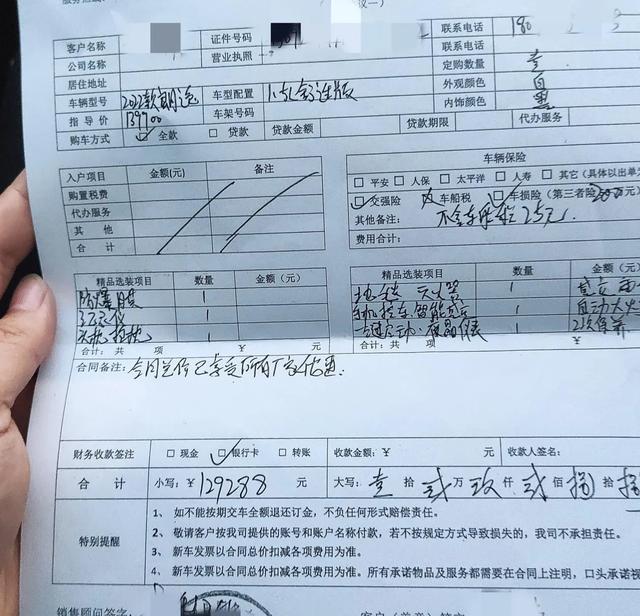 客户名称 证件号码 联系电话 180
公司名称 营业执照 联系电话
居住地址 定购数量 壹
车辆型号 2022款朗逸 车型配置 1.5L 连版 外观颜色 白
指导价 139900 车架号码 内饰颜色 黑
购车方式 全款 □ 贷款 贷款金额 贷款期限 代办服务
入户项目 金额(元) 备注
购置税费
代办服务
其 他
合 计
车辆保险
□ 平安 □ 人保 □ 太平洋 □ 人寿 □ 其它(具体以出单为
交强险 车船税 车损险(第三者险
其他备注:
费用合计:
精品选装项目 数量 金额(元)
防爆膜 1
1
1
合计: 共 项 ¥ 元
精品选装项目 数量 金额(元)
地毯 灭火器 1
1
一键启动 液晶仪 1
合计: 共 项 ¥
合同备注: 合同总价已享受所有厂家优惠.
财务收款签注 □ 现金 银行卡 □ 转账 收款金额: ¥ 元 收款人签名:
合 计 小写: ¥ 129288 元 大写: 壹 拾 贰 万 玖 仟 贰 佰 捌 拾 捌
特别提醒
1、 如不能按期交车全额退还订金, 不负任何形式赔偿责任。
2、 敬请客户按我司提供的账号和账户名称付款, 若不按规定方式导致损失的, 我司不承担责任。
3、 新车发票以合同总价扣减各项费用为准。
4、 新车发票以合同总价扣减各项费用为准。所有承诺物品及服务都需要在合同上注明, 口头承诺视
销售顾问签字: